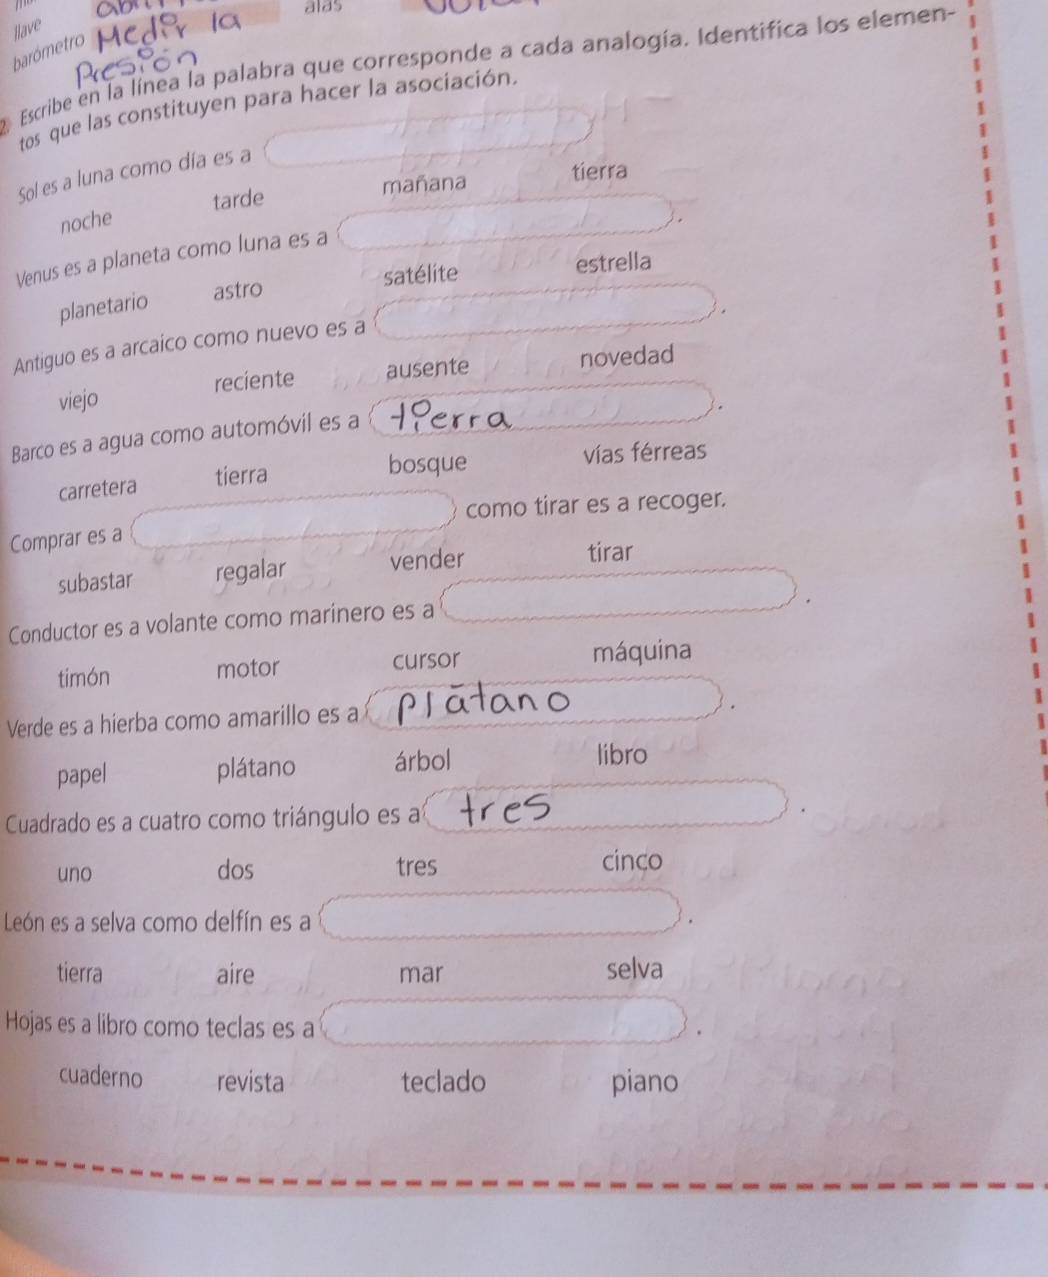 llave
alas
barómetro Medir la
Presión
2. Escribe en la línea la palabra que corresponde a cada analogía. Identifica los elemen-
tos que las constituyen para hacer la asociación.
Sol es a luna como día es a
noche tarde mañana tierra
Venus es a planeta como luna es a .
planetario astro satélite estrella
Antiguo es a arcaico como nuevo es a .
viejo reciente ausente novedad
Barco es a agua como automóvil es a tierra .
carretera tierra bosque vías férreas
Comprar es a como tirar es a recoger.
subastar regalar vender tirar
Conductor es a volante como marinero es a .
timón motor cursor máquina
Verde es a hierba como amarillo es a plátano .
papel plátano árbol libro
Cuadrado es a cuatro como triángulo es a tres .
uno dos tres cinco
León es a selva como delfín es a .
tierra aire mar selva
Hojas es a libro como teclas es a .
cuaderno revista teclado piano